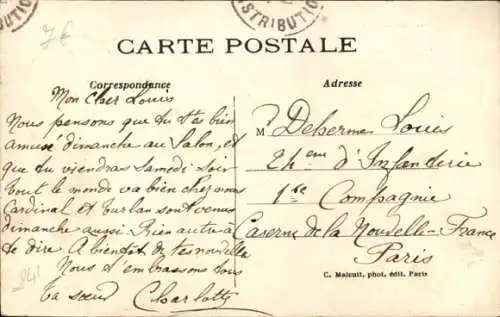 DISTRIBUTION
CARTE POSTALE
Correspondance
Adresse
Mon Cher Louis
Nous pensons que tu t'es bien
amusé dimanche au Salon, et
que tu viendras Samedi soir
Tout le monde va bien chez nous
Cardinal et Turlan sont venus
dimanche aussi. Rien autre à
te dire. A bientôt de tes nouvelles
Nous t'embrassons tous
Ta sœur Charlotte
M Deherme Louis
24eme d'Infanterie
1re Compagnie
Caserne de la Nouvelle-France
Paris
C. Malcuit, phot. édit. Paris